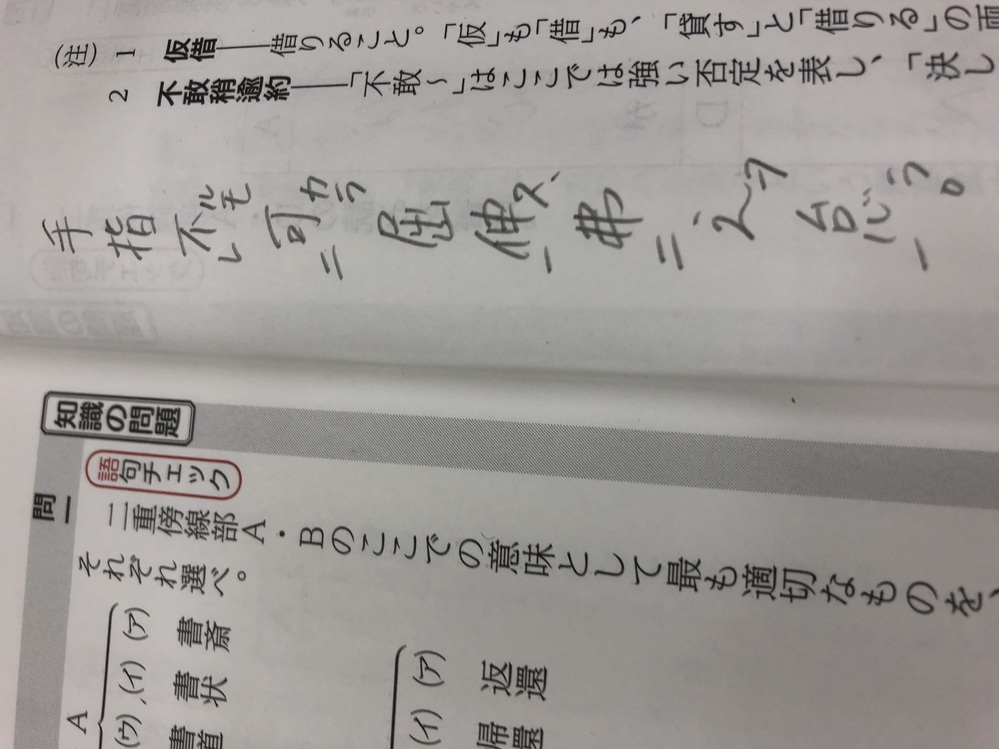 (注) 1 仮借――借りること。「仮」も「借」も、「貸す」と「借りる」の両
2 不敢稍逾約――「不敢~」はここでは強い否定を表し、「決し
手指不ルモレ可カラ二屈伸ス一、弗二之ヲ怠ラ一。
知識の問題
語句チェック
問一 二重傍線部A・Bのここでの意味として最も適切なものを、
それぞれ選べ。
A
(ア) 書斎
(イ) 書状
(ウ) 書道
(ア) 返還
(イ) 帰還